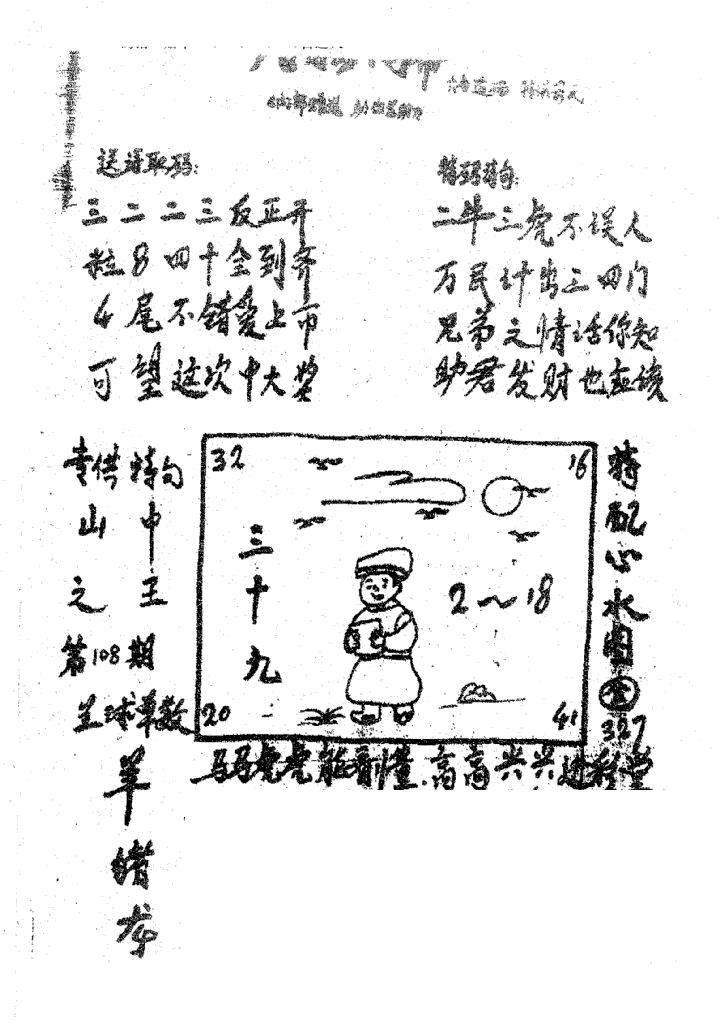 送诗取码:
三二二三反正开
粒8四十全到齐
4尾不错爱上市
可望这次中大奖
特码诗句:
二牛三虎不误人
万民计出三四门
兄弟之情话你知
助君发财也应该
专供特句
山中
之王
第108期
生球单数
羊
猪
龙
32
16
三十九
2～18
20
41
特配心水图
327
马马虎虎能看懂.高高兴兴进彩堂